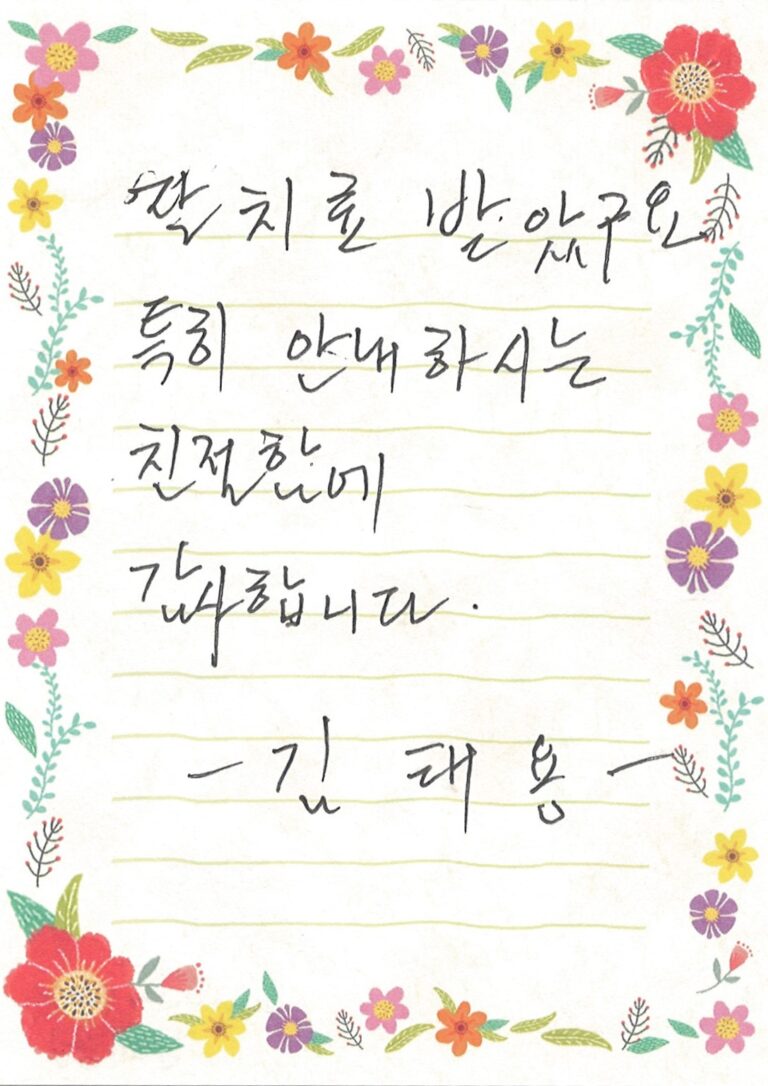 잘 치료 받았구요
특히 안내하시는
친절함에
감사합니다.
- 김 태 용 -